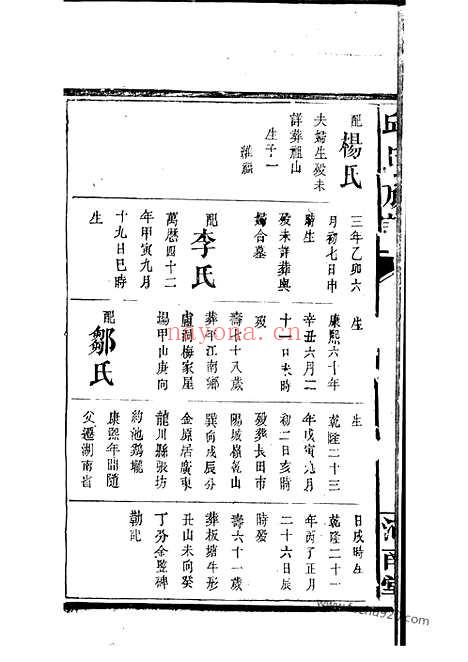 邱氏族譜
河南堂
配楊氏
夫婦生歿未
詳葬祖山
生子一
三年乙卯六
月初七日申
時生
歿未詳葬與
婦合墓
配李氏
萬曆四十二
年甲寅九月
十九日巳時
生
生
康熙六十年
辛丑六月二
十一日未時
歿
壽七十八歲
葬平江南鄉
盧洞梅家屋
場甲山庚向
配鄒氏
生
乾隆二十三
年戊寅九月
初二日亥時
歿葬長田市
陽城嶺乾山
巽向戊辰分
金原居廣東
龍川縣張坊
約池鷄壠
康熙年間隨
父遷湖南省
日戌時生
乾隆二十一
年丙子正月
二十六日辰
時歿
壽六十一歲
葬板塘牛形
丑山未向癸
丁分金監碑
勒記
nayona.cn
www.fozhu920.com